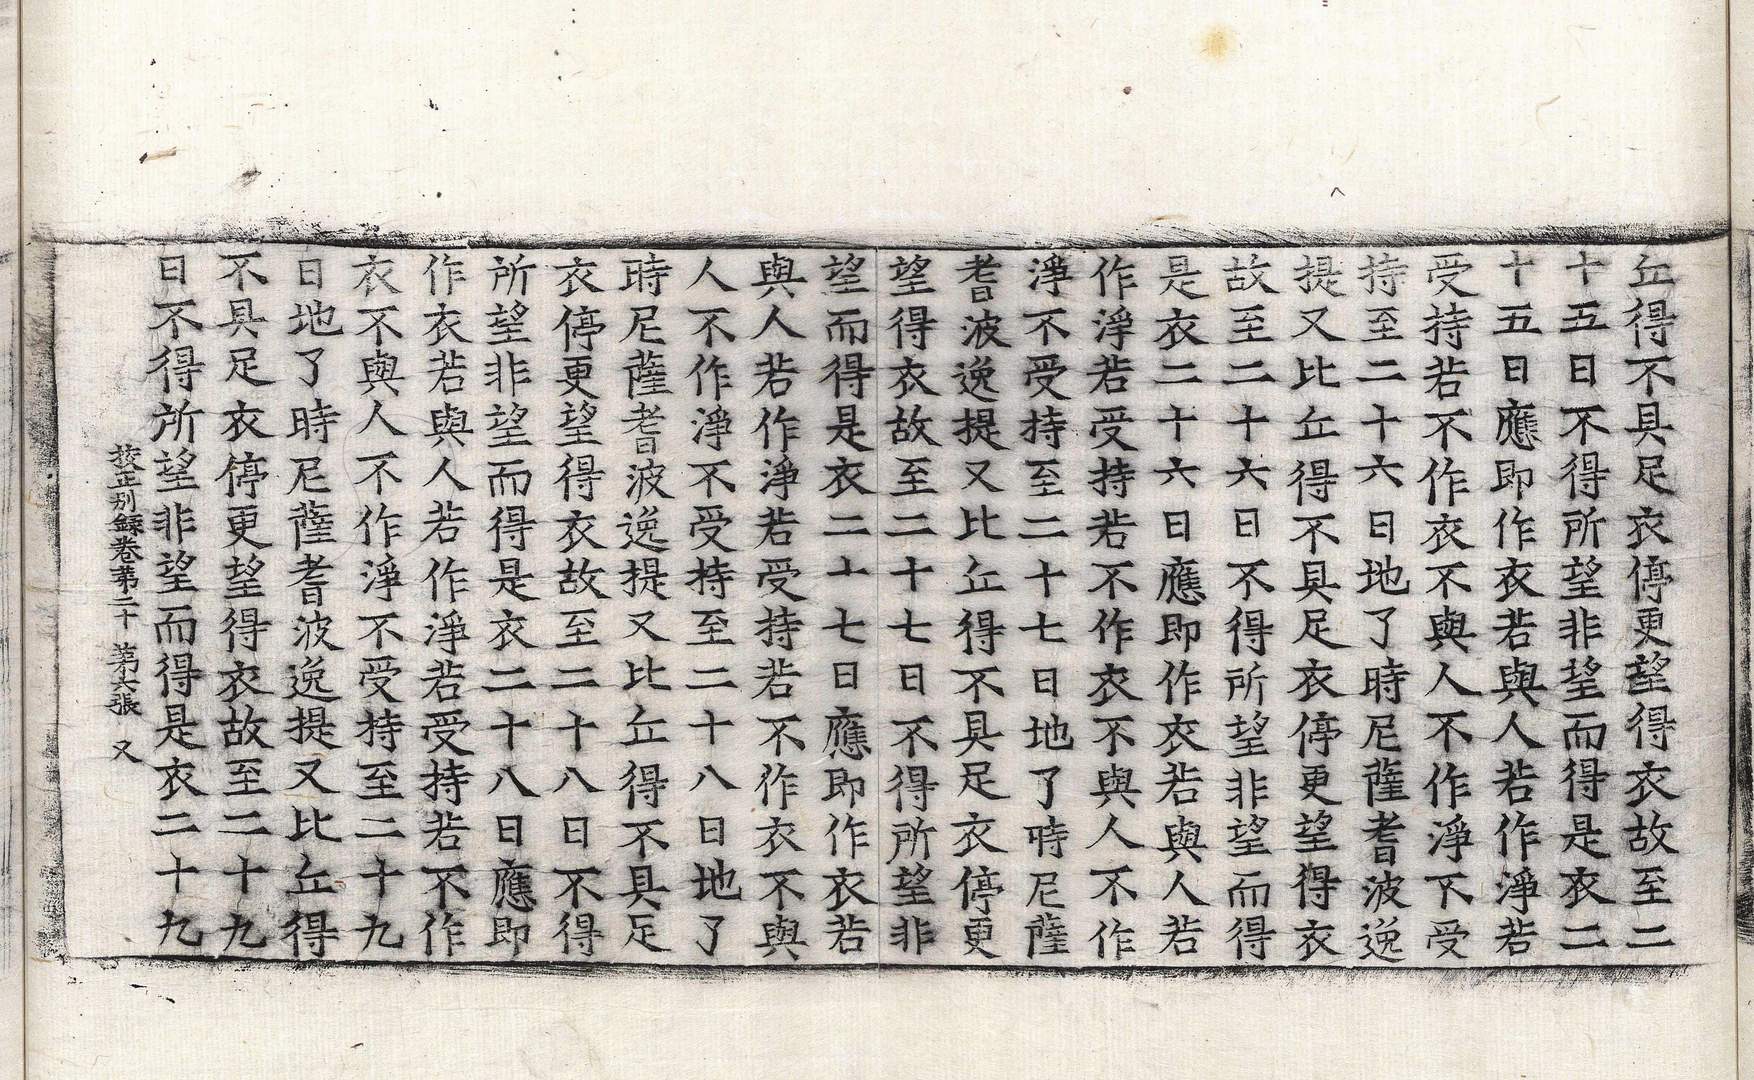 丘得不具足衣停更望得衣故至二
十五日不得所望非望而得是衣二
十五日應即作衣若與人若作淨若
受持若不作衣不與人不作淨不受
持至二十六日地了時尼薩耆波逸
提又比丘得不具足衣停更望得衣
故至二十六日不得所望非望而得
是衣二十六日應即作衣若與人若
作淨若受持若不作衣不與人不作
淨不受持至二十七日地了時尼薩
耆波逸提又比丘得不具足衣停更
望得衣故至二十七日不得所望非
望而得是衣二十七日應即作衣若
與人若作淨若受持若不作衣不與
人不作淨不受持至二十八日地了
時尼薩耆波逸提又比丘得不具足
衣停更望得衣故至二十八日不得
所望非望而得是衣二十八日應即
作衣若與人若作淨若受持若不作
衣不與人不作淨不受持至二十九
日地了時尼薩耆波逸提又比丘得
不具足衣停更望得衣故至二十九
日不得所望非望而得是衣二十九
挍正別錄卷第二十 第六張 又